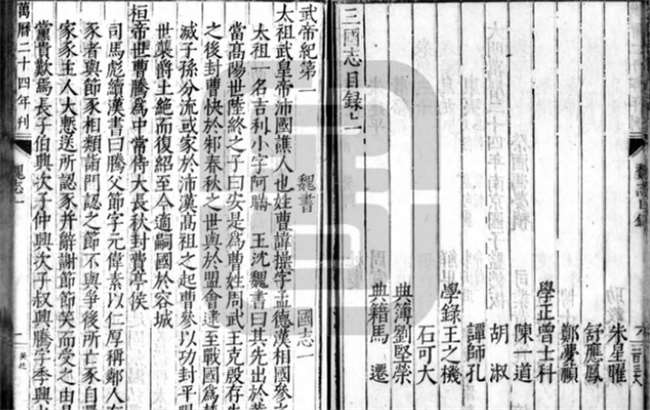 魏志目録
朱星曜
舒應鳳
鄭夢
學正曾士科
陳一道
胡淑
譚師孔
學錄王之機
石可大
典簿劉堅榮
典籍馬遷
三國志目録
武帝紀第一 魏書 國志一
太祖武皇帝沛國譙人也姓曹諱操字孟德漢相國參之
太祖一名吉利小字阿瞞 王沈魏書曰其先出於
當高陽世陸終之子曰安是爲曹姓周武王克殷存
之後封曹俠於邾春秋之世與於盟會逮至戰國爲
滅子孫分流或家於沛漢高祖之起曹參以功封平
世襲爵土絶而復紹至今適嗣國於容城
桓帝世曹騰爲中常侍大長秋封費亭侯
司馬彪續漢書曰騰父節字元偉素以仁厚稱鄰人有
豕者與節豕相類詣門認之節不與爭後所亡豕自
家豕主人大慙送所認豕并辭謝節節笑而受之由是
黨貴歎焉長子伯興次子仲興次子叔興騰字季興
萬曆二十四年刊
魏志一
一